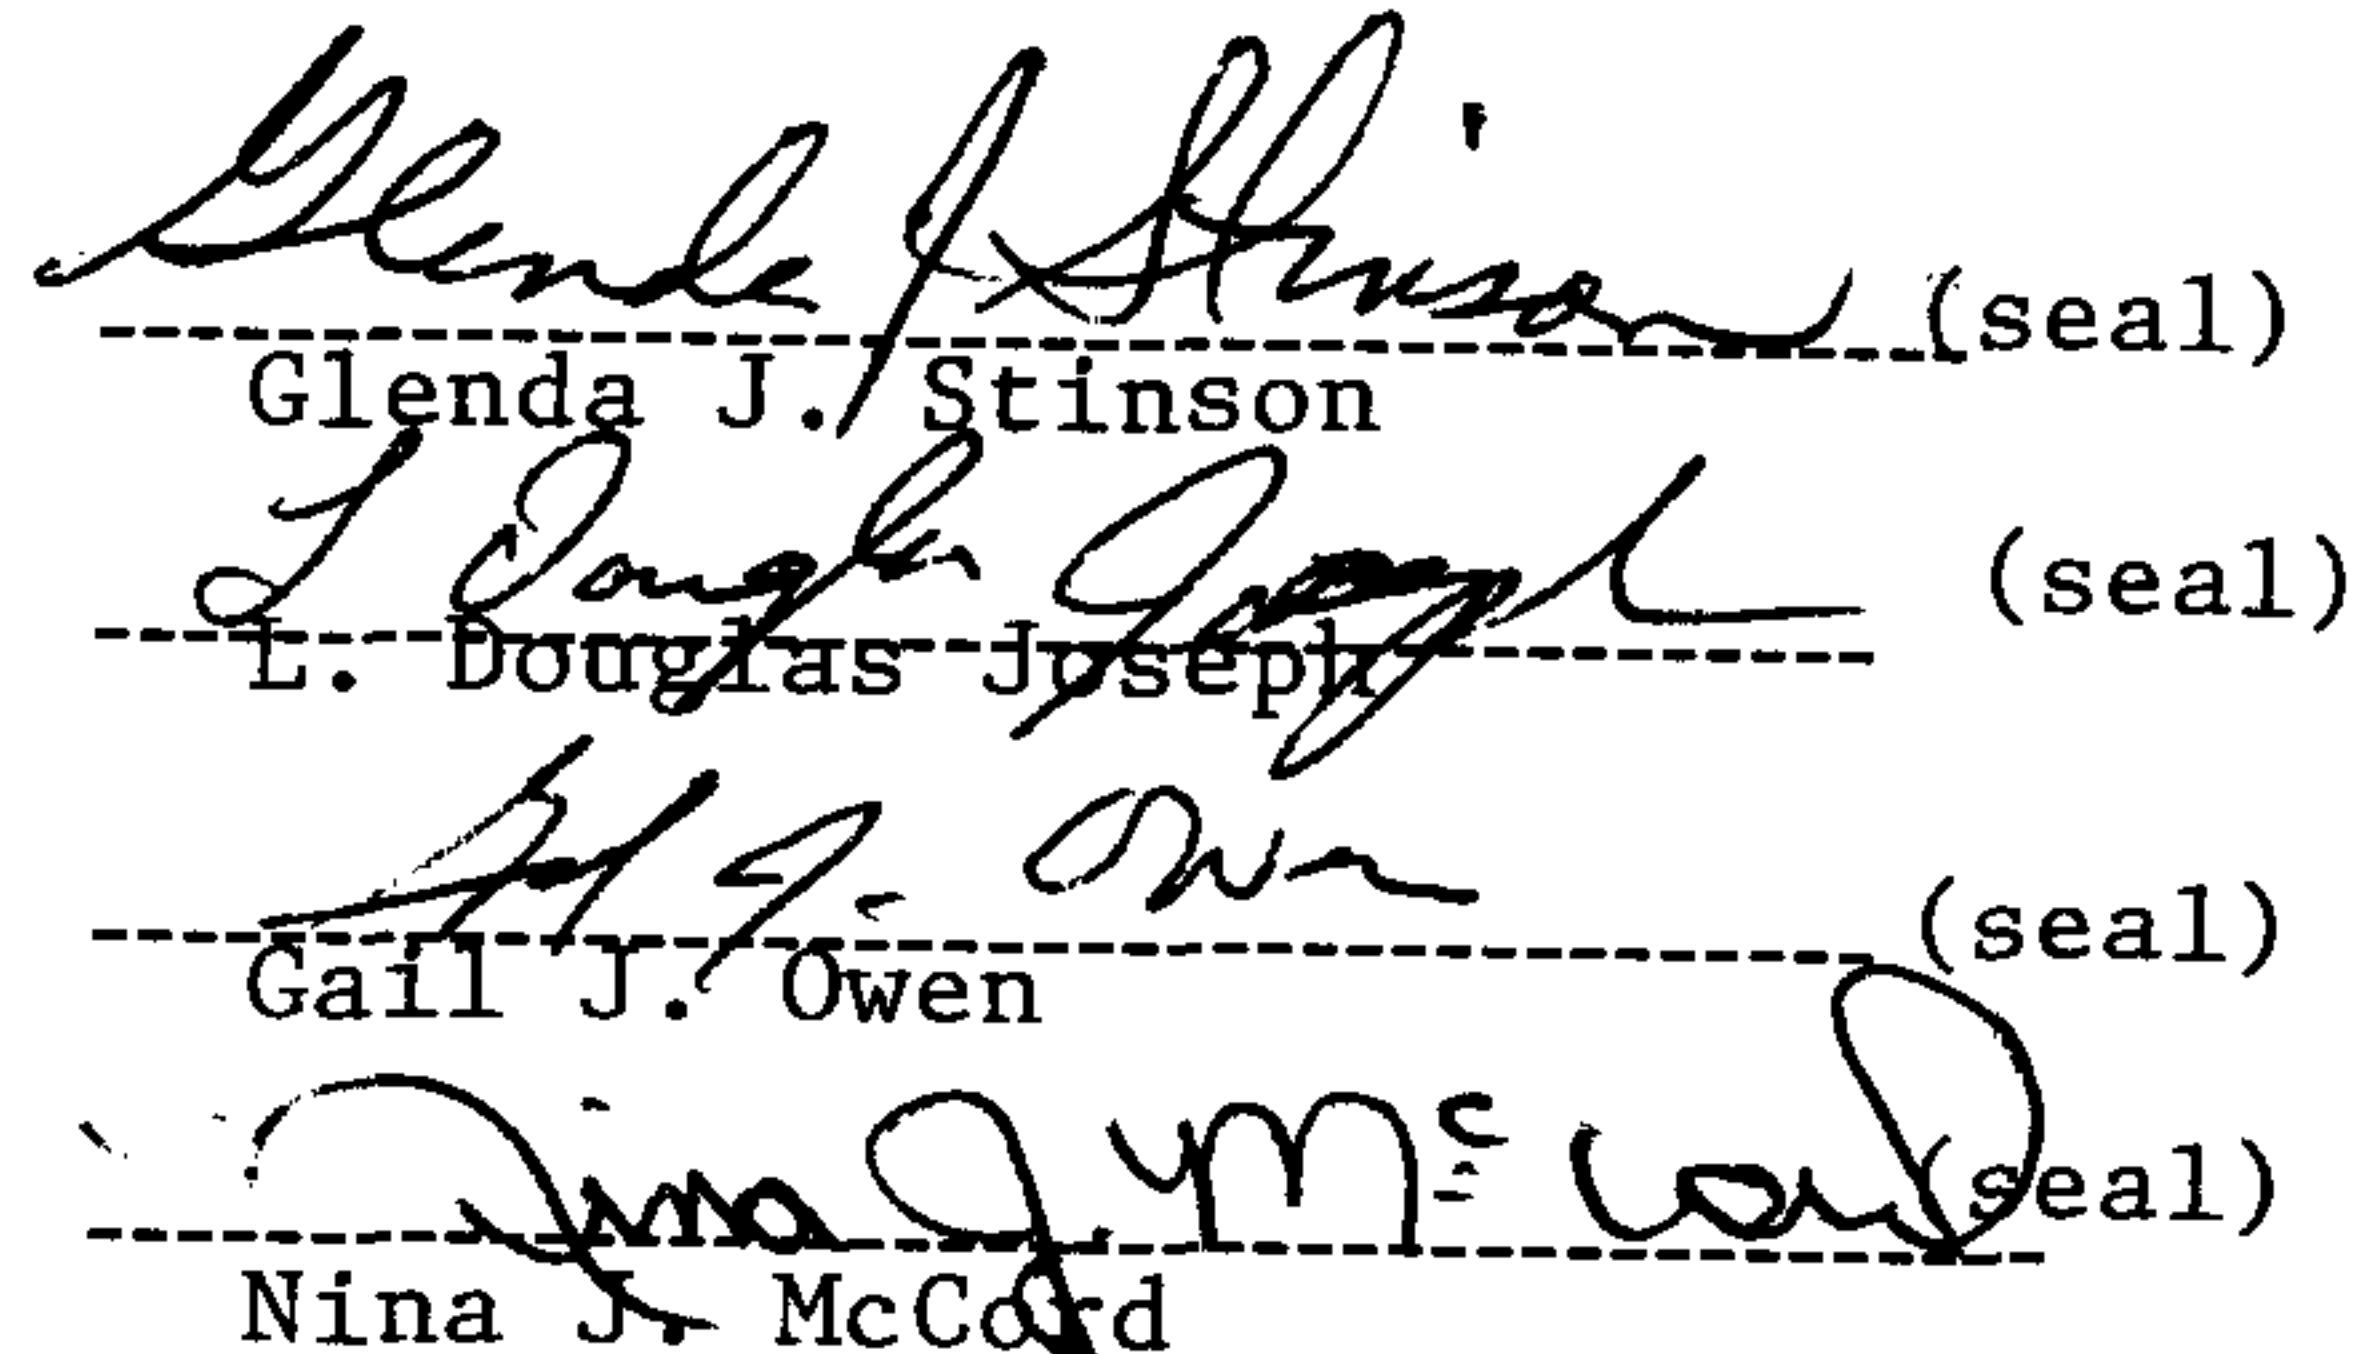 Glenda J Stinson (seal)
Glenda J. Stinson
L Douglas Joseph (seal)
L. Douglas Joseph
Gail J. Owen (seal)
Gail J. Owen
Nina J. Mc Cord (seal)
Nina J. McCord